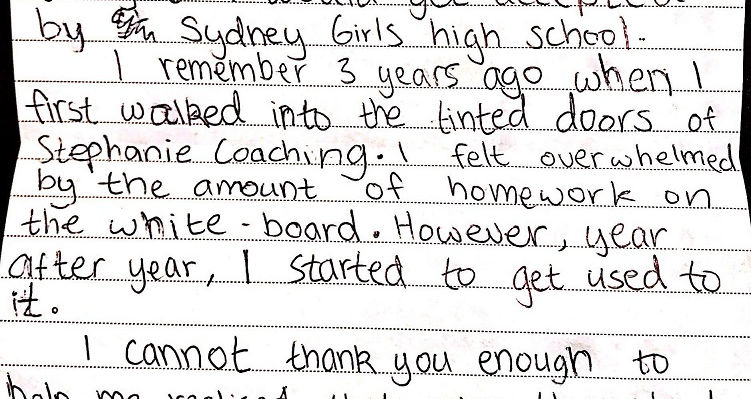 by Sydney Girls high school.
I remember 3 years ago when I
first walked into the tinted doors of
Stephanie Coaching. I felt overwhelmed
by the amount of homework on
the white-board. However, year
after year, I started to get used to
it.
I cannot thank you enough to
help me